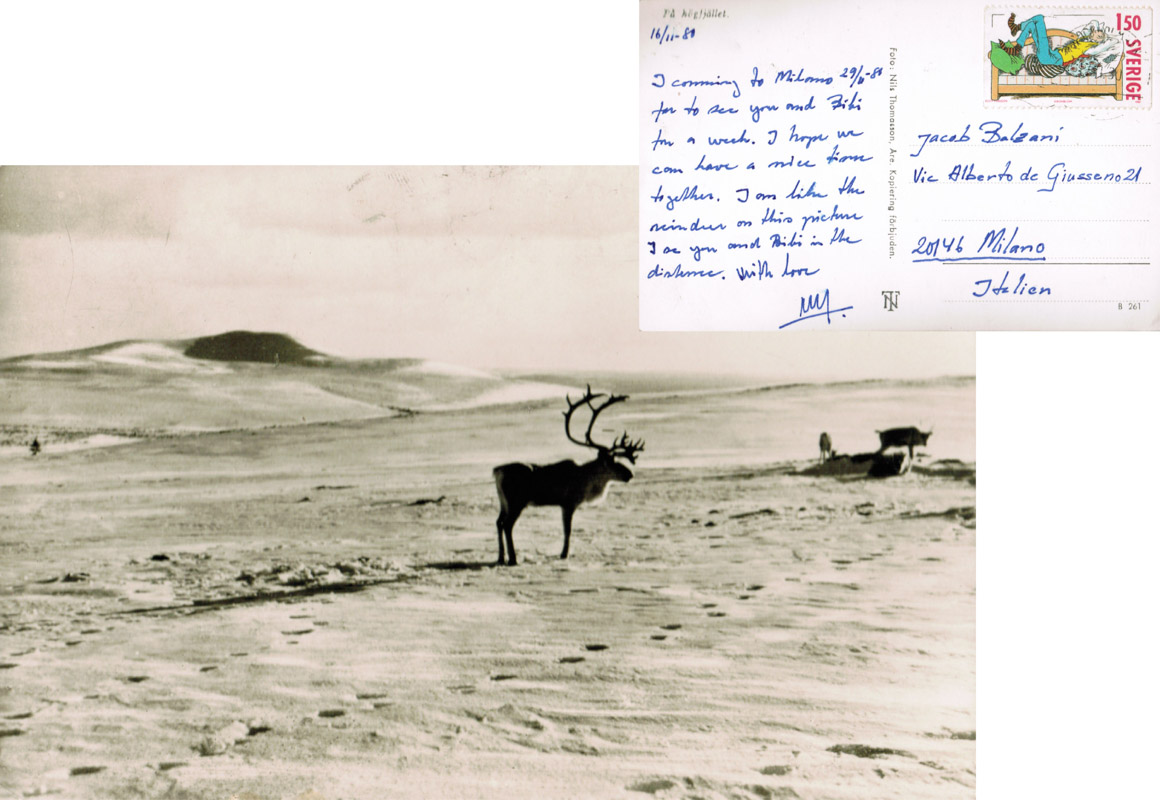 På högfjället.
16/11-80
I comming to Milano 29/11-80
for to see you and Bibi
for a week. I hope we
can have a nice time
together. I am like the
reindeer on this picture
I se you and Bibi in the
distance. With love
Foto: Nils Thomasson, Åre. Kopiering förbjuden.
NT
150
SVERIGE
Jacob Balzani
Via Alberto de Giusseno 21
20146 Milano
Italien
B 261